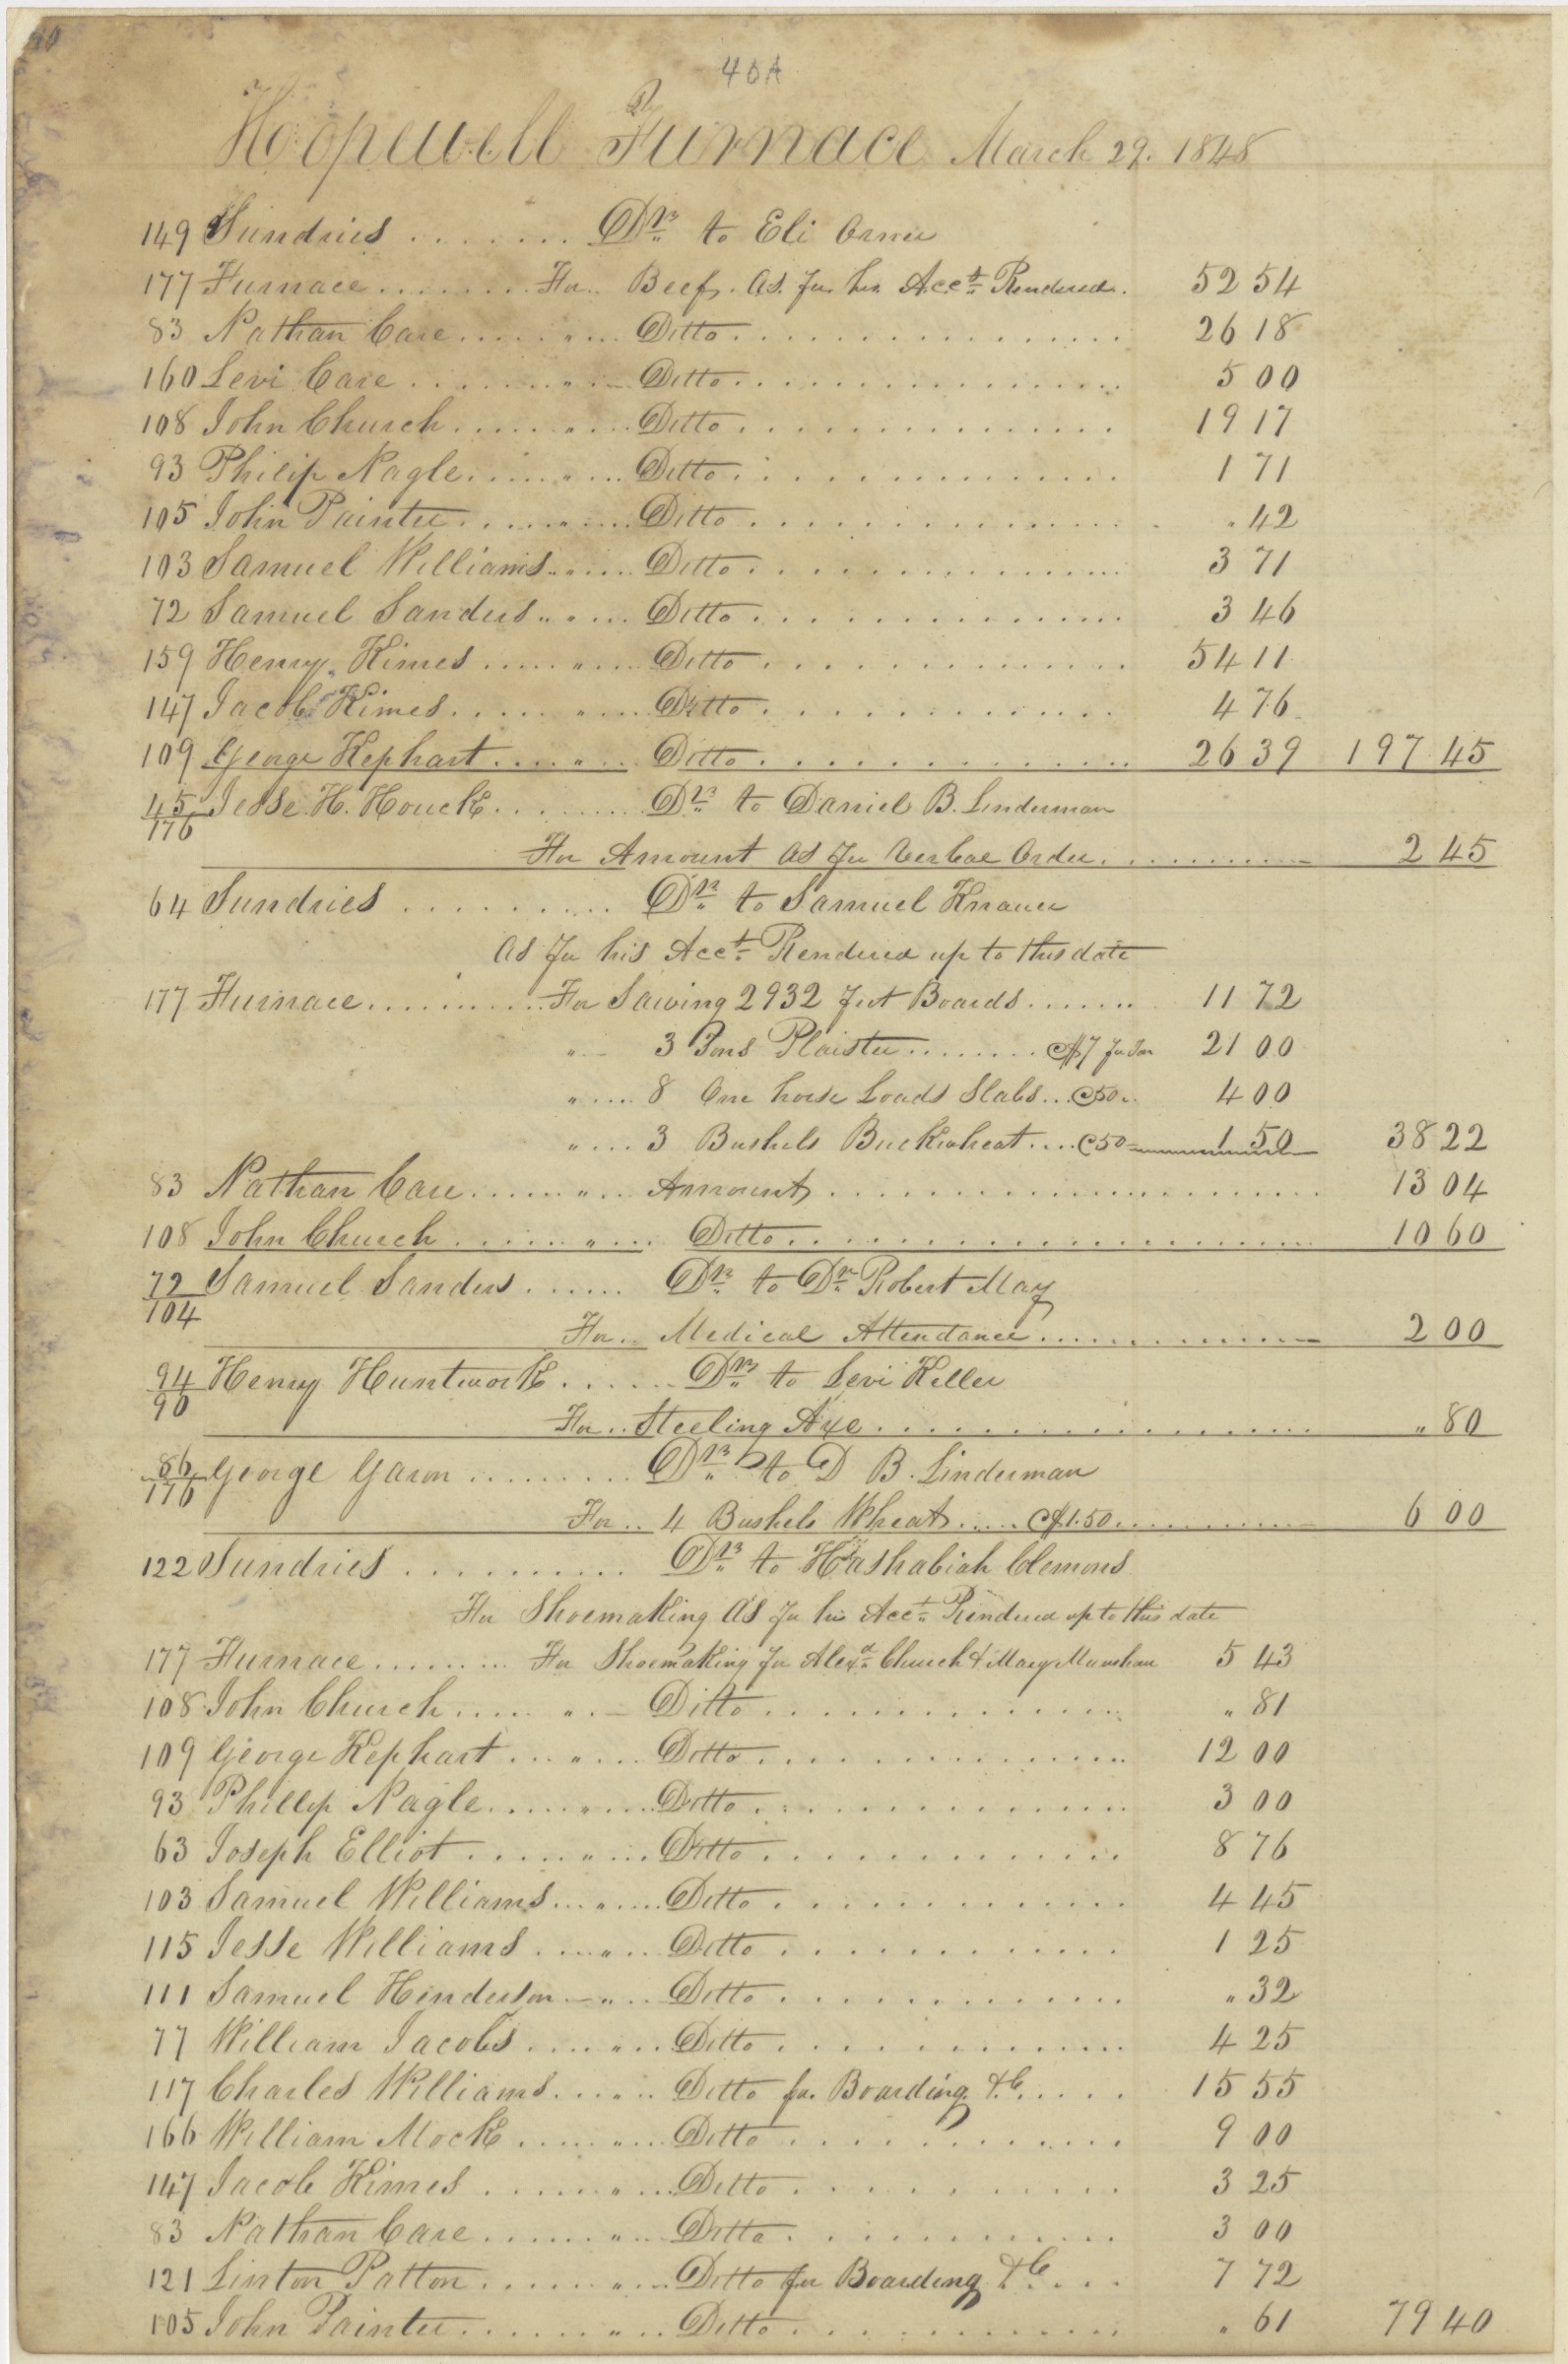 40A
Hopewell Furnace March 29. 1848
149 Sundries ........ Drs to Eli Orner
177 Furnace ........ For .. Beef. As Per his Acct Rendered. 52 54
83 Nathan Care ..... " ... Ditto ............ 26 18
160 Levi Care ........ " .. Ditto ............ 5 00
108 John Church ....... " ... Ditto ............ 19 17
93 Philip Nagle ..... " ... Ditto ............ 1 71
105 John Painter ...... " .... Ditto ............ " 42
103 Samuel Williams ... " ... Ditto ............ 3 71
72 Samuel Sanders .. " ... Ditto ............ 3 46
159 Henry Kimes ..... " .... Ditto ............ 54 11
147 Jacob Kimes ...... " .... Ditto ............ 4 76
109 George Kephart ..... " ... Ditto ............ 26 39 197 45
45/176 Jesse H. Houck ......... Dr to Daniel B. Linderman
For Amount as Per Verbal Order ............ 2 45
64 Sundries .......... Drs to Samuel Knauer
As Per his Acct Rendered up to this date
177 Furnace ........... For Sawing 2932 feet Boards ....... 11 72
" .. 3 Tons Plaister ........ @$7 Per Ton 21 00
" .... 8 One horse Loads Slabs ... @50 .. 4 00
" .... 3 Bushels Buckwheat .... @50 1 50 38 22
83 Nathan Care ...... " ... Amount ............ 13 04
108 John Church ...... " ... Ditto ............ 10 60
72/104 Samuel Sanders ...... Dr to Dr Robert May
For .. Medical Attendance ............ 2 00
94/90 Henry Huntwork ....... Dr to Levi Keller
For .. Steeling Axe ............ " 80
86/176 George Garon ......... Dr to D B. Linderman
For .. 4 Bushels Wheat ..... @$1.50 ............ 6 00
122 Sundries .......... Drs to Hashabiah Clemons
For Shoemaking As Per his Acct Rendered up to this date
177 Furnace ......... For Shoemaking Per Alexr Church & Mary 5 43
108 John Church ..... " . Ditto ............ " 81
109 George Kephart ... " .... Ditto ............ 12 00
93 Phillip Nagle ..... " .... Ditto ............ 3 00
63 Joseph Elliot ...... " ... Ditto ............ 8 76
103 Samuel Williams ... " .... Ditto ............ 4 45
115 Jesse Williams .... " .. Ditto ............ 1 25
111 Samuel Hinderson .. " ... Ditto ............ " 32
77 William Jacobs .... " ... Ditto ............ 4 25
117 Charles Williams .... " .. Ditto for Boarding &C ..... 15 55
166 William Mock ..... " .... Ditto ............ 9 00
147 Jacob Kimes ...... " .... Ditto ............ 3 25
83 Nathan Care ...... " ... Ditto ............ 3 00
121 Linton Patton ....... " .... Ditto for Boarding &C .... 7 72
105 John Painter ....... " .. Ditto ............ " 61 79 40